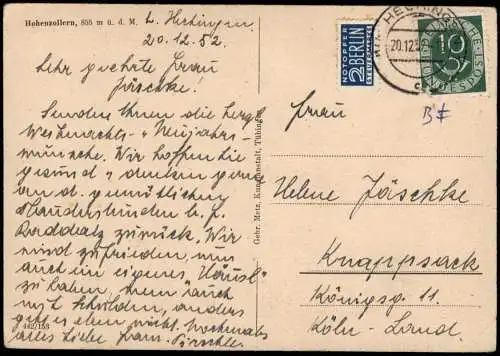 Hohenzollern, 855 m ü. d. M.
z. Hechingen
20.12.52.
Sehr geehrte Frau
Jäschke!
Senden Ihnen die herzl.
Weihnachts- u. Neujahrs-
wünsche. Wir hoffen Sie
gesund u. denken gern
an d. gemütlichen
Plauderstunden b. F.
zurück. Wir
sind zufrieden, nun
auch ein eigenes "Häusl"
zu haben, wenn auch
mit Schulden, anders
geht es eben nicht. Nochmals
alles Liebe Fam.
442/153
Gebr. Metz, Kunstanstalt, Tübingen
NOTOPFER
2 BERLIN
STEUERMARKE
HECHINGEN
20.12.52
10
DEUTSCHE BUNDESPOST
Frau
Helene Jäschke
Knappsack
Königsg. 11.
Köln-Land.